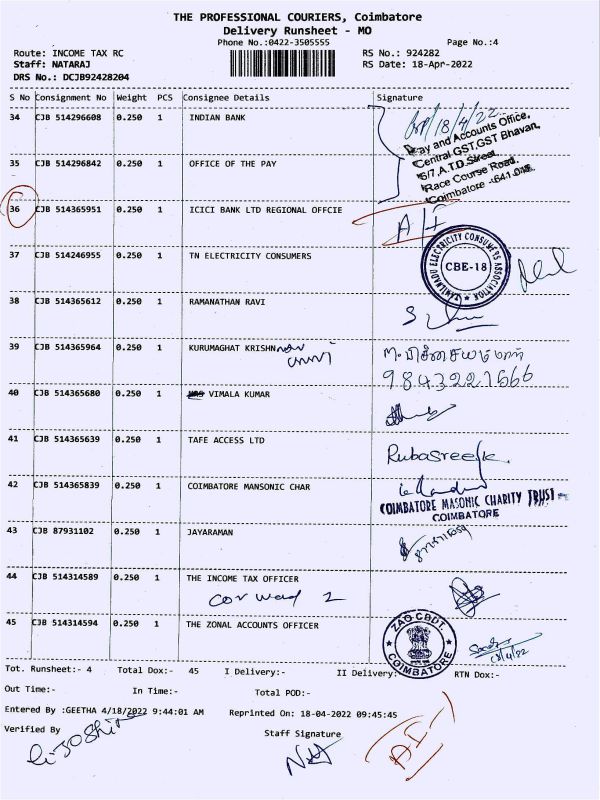 THE PROFESSIONAL COURIERS, Coimbatore
Delivery Runsheet - MO
Phone No.:0422-3505555 Page No.:4
Route: INCOME TAX RC RS No.: 924282
Staff: NATARAJ RS Date: 18-Apr-2022
DRS No.: DCJB92428204
S No Consignment No Weight PCS Consignee Details Signature
34 CJB 514296608 0.250 1 INDIAN BANK
18/4/22
Pay and Accounts Office,
Central GST,GST Bhavan,
6/7,A.T.D.Street,
Race Course Road,
35 CJB 514296842 0.250 1 OFFICE OF THE PAY
36 CJB 514365951 0.250 1 ICICI BANK LTD REGIONAL OFFCIE
37 CJB 514246955 0.250 1 TN ELECTRICITY CONSUMERS
TAMILNADU ELECTRICITY CONSUMERS ASSOCIATION
CBE-18
38 CJB 514365612 0.250 1 RAMANATHAN RAVI
39 CJB 514365964 0.250 1 KURUMAGHAT KRISHN
9843221666
40 CJB 514365680 0.250 1 VIMALA KUMAR
41 CJB 514365639 0.250 1 TAFE ACCESS LTD
42 CJB 514365839 0.250 1 COIMBATORE MANSONIC CHAR
COIMBATORE MASONIC CHARITY TRUST
COIMBATORE
43 CJB 87931102 0.250 1 JAYARAMAN
44 CJB 514314589 0.250 1 THE INCOME TAX OFFICER
45 CJB 514314594 0.250 1 THE ZONAL ACCOUNTS OFFICER
ZAO CBDT.
COIMBATORE
Tot. Runsheet:- 4 Total Dox:- 45 I Delivery:- II Delivery: RTN Dox:-
Out Time:- In Time:- Total POD:-
Entered By :GEETHA 4/18/2022 9:44:01 AM Reprinted On: 18-04-2022 09:45:45
Verified By Staff Signature